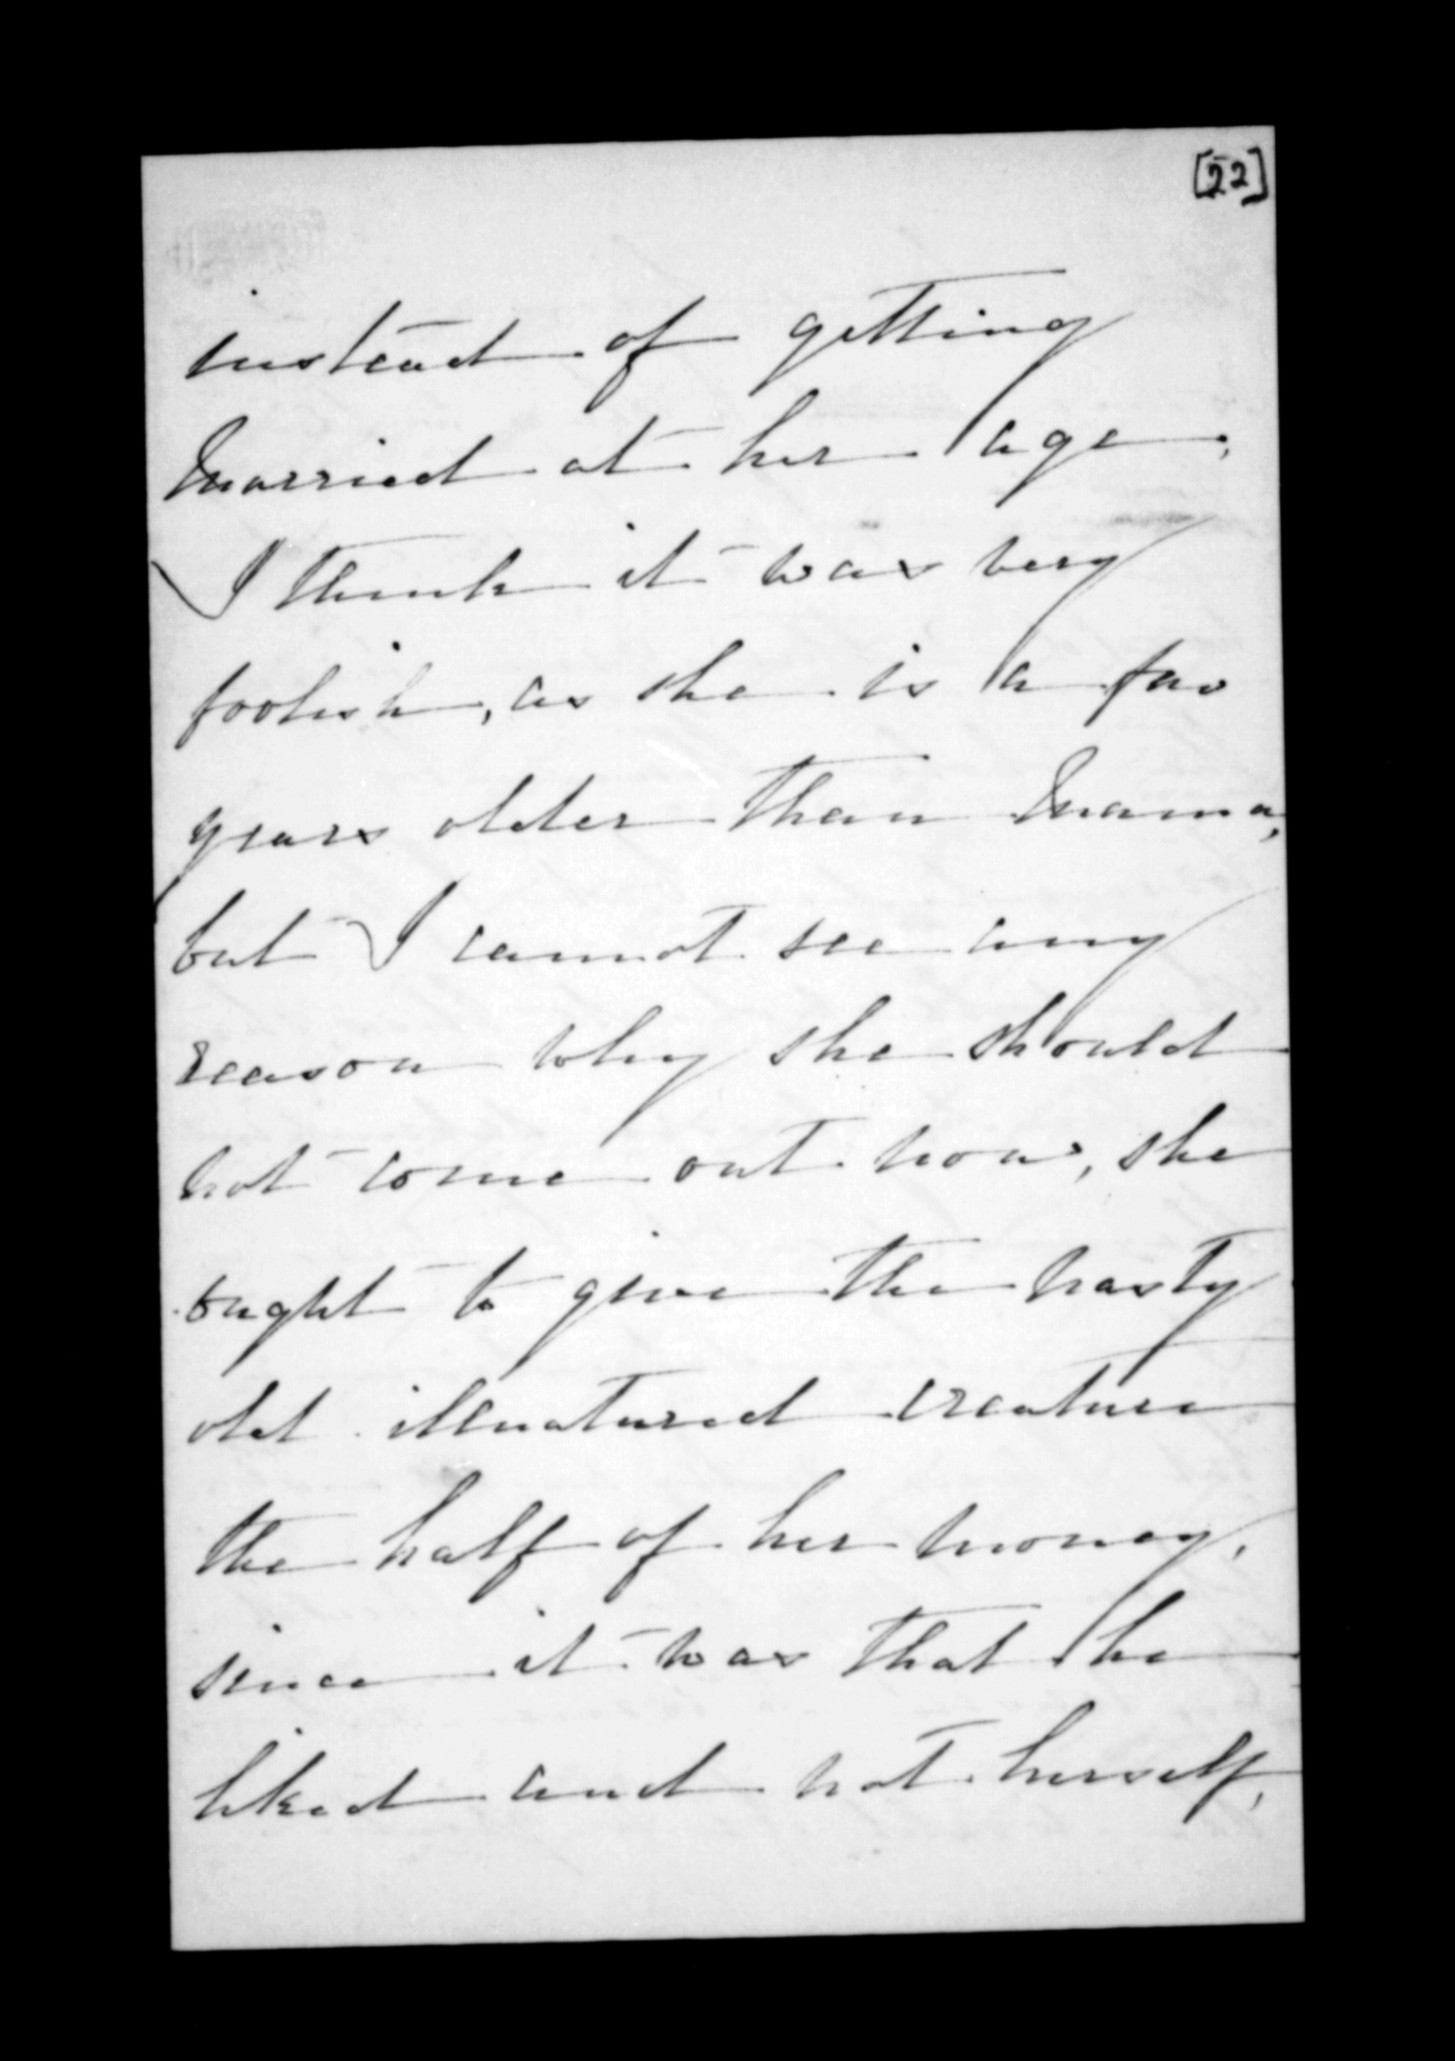 [22]
instead of getting
married at her age,
I think it was very
foolish, as she is a few
years older than Mama,
but I cannot see any
reason why she should
not come out now, she
ought to give the nasty
old illnatured creature
the half of her money,
since it was that he
liked and not herself,